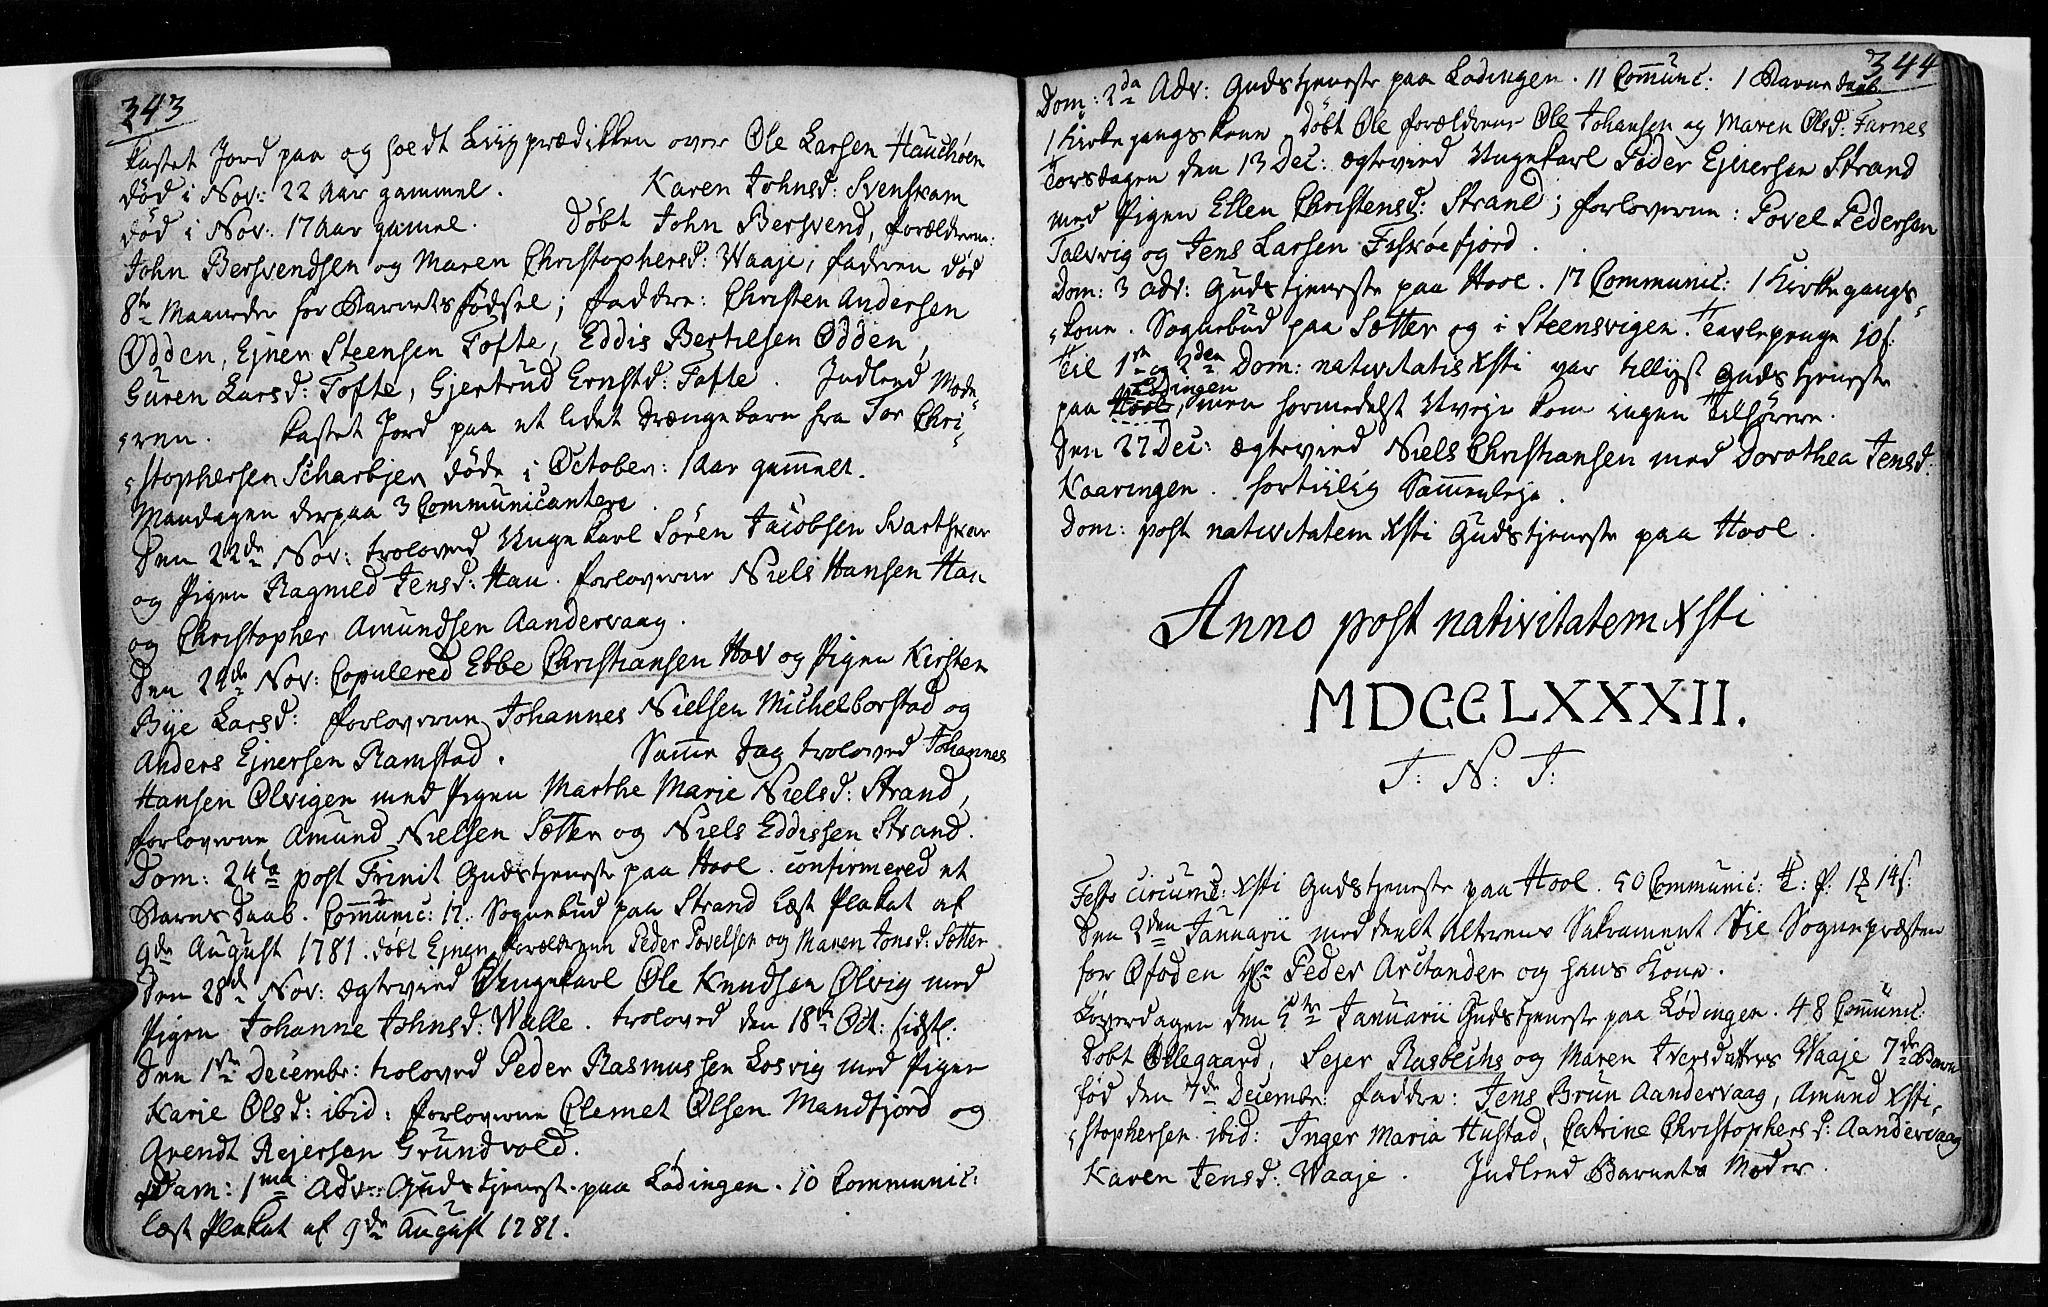 343
kastet Jord paa og holdt Liigprædikken over Ole Larsen Hauchøen
død i Nov: 22 Aar gammel. Karen Johnsd: Svenskam
død i Nov: 17 Aar gamel. Døbt John Bersvend, forældrene:
John Bersvendsen og Maren Christophersd: Waaje, faderen død
8te Maaneder før Barnets fødsel; faddre: Christen Andersen
Odden, Ejner Steensen Tofte, Eddis Bertelsen Odden,
Guren Larsd: Tofte, Gjertrud Ernstd: Tofte. Indlend Mode-
-ren. kastet Jord paa et lidet Drængebarn fra Tor Chri-
-stophersen Scharbjen døde i October: 1 Aar gammelt.
Mandagen derpaa 3 Communicantere.
Den 22de Nov: troloved Ungekarl Søren Jacobsen Svartskar
og Pigen Ragnild Jensd: Hau. forloverne Niels Hansen Hau
og Christopher Amundsen Aandervaag.
Den 29de Nov: Copulered Ebbe Christiansen Hov og Pigen Kirsten
Bye Larsd: forloverne Johannes Nielsen Michelborstad og
Anders Ejnersen Ramstad. Samme Dag troloved Johannes
Hansen Ølvigen med Pigen Marthe Marie Nielsd: Strand,
forloverne Amund Nielsen Sætter og Niels Eddissen Strand.
Dom: 24ta post Trinit Gudstjeneste paa Hool. confirmered et
Barns Daab. Communic: 17. Sognebud paa Strand læst Plakat af
9de August 1781. døbt Ejner, forældrene Peder Povelsen og Maren Jonsd: Sætter
Den 28de Nov: ægtevied Ungekarl Ole Knudsen Ølvig med
Pigen Johanne Johnsd: Walle. troloved den 18de Oct: sidstl.
Den 1ste Decembr: troloved Peder Rasmussen Losvig med Pigen
Karie Olsd: ibid: forloverne Clemet Olsen Mandfjord og
Arendt Rejersen Grundvold.
Dom: 1ma Adv: Gudstjenest. paa Lødingen. 10 Communic:
læst Plakat af 9de August 1781.
344
Dom: 2da Adv: Gudstjeneste paa Lødingen. 11 Commūnc: 1 Barnedaab
1 Kirkegangskone. Døbt Ole forældrene Ole Johansen og Maren Olsd: Farnes
Torsdagen den 13 Dec: ægtevied Ungekarl Peder Ejnersen Strand
med Pigen Ellen Christensd: Strand; forloverne: Povel Pedersen
Talvvig og Jens Larsen Fiskøefjord.
Dom: 3 Adv: Gudstjeneste paa Hool. 17 Communic: 1 Kirkegangs-
-kone. Sognebud paa Sætter og i Steensvigen. Tavlepenge 10 s:
Til 1ste og 2den Dom: nativitatis Xsti var tillyst Gudstjeneste
paa Hool Lødingen, men formedelst Uveje kom ingen Tilhørere.
Den 27 Dec: ægtevied Niels Christiansen med Dorothea Jensd:
Kaaringen. fortiilig Sammenleje.
Dom: post nativitatem Xsti Gudstjeneste paa Hool.
Anno post nativitatem Xsti
MDCCLXXXII.
J: N: J:
Festo circumc: Xsti Gudstjeneste paa Hool. 50 Communic:
Den 2den Januarii meddeelt Alterens Sakrament til Sognepræsten
for Ofoden Hr Peder Arctander og hans Kone.
Løverdagen den 5te Januarii Gudstjeneste paa Lødingen. 48 Commūnic:
Døbt Ollegaard, Sejer Rasbechs og Maren Iversdatters Waaje 7de Barn
fød den 7de Decembr: faddre: Jens Brun Aandervaag, Amund Xsti-
-stophersen ibid: Inger Maria Hustad, Catrine Christophersd: Aandervaag
Karen Jensd: Waaje. Indlend Barnets Moder.